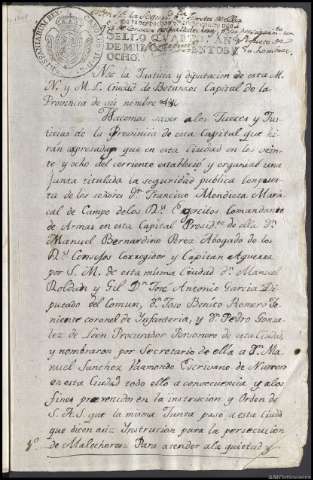 SELLO QUARTO, AÑO
DE MIL OCHOCIENTOS Y
OCHO.
Nos la Justicia y diputacion de esta M.
N. y M. L. Ciudad de Betanzos Capital de la
Provincia de su nombre
Hacemos saver a los Jueces y Jus-
ticias de la Provincia de esta Capital que
que en esta Ciudad en los veinte
y ocho del corriente establecio y organizó una
Junta titulada la seguridad publica compues-
ta de los señores dn. Francisco Mendieta Maris-
cal de Campo de los Rs. Egercitos Comandante
de Armas en esta Capital Presid.te de ella dn.
Manuel Bernardino Perez Abogado de los
Rs. Consejos Corregidor y Capitan Aguerra
por S. M. de esta misma Ciudad dn. Manuel
Roldan y Gil Dn. Jose Antonio Garcia Di-
putado del Comun, dn. Jose Benito Romero te-
niente coronel de Infanteria, y dn. Pedro Gonza-
lez de Leon Procurador Personero de esta Ciudad,
y nombraron por Secretario de ella a Dn. Ma-
nuel Sanchez Vaamonde Escrivano de Numero
en esta Ciudad todo ello a consecuencia y a los
fines prevenidos en la instrucion y Orden de
S. A. S. que la misma Junta pasó a esta Ciudad
que dicen asi: Instrucion para la persecucion
de Malechores. Para atender a la quietud y